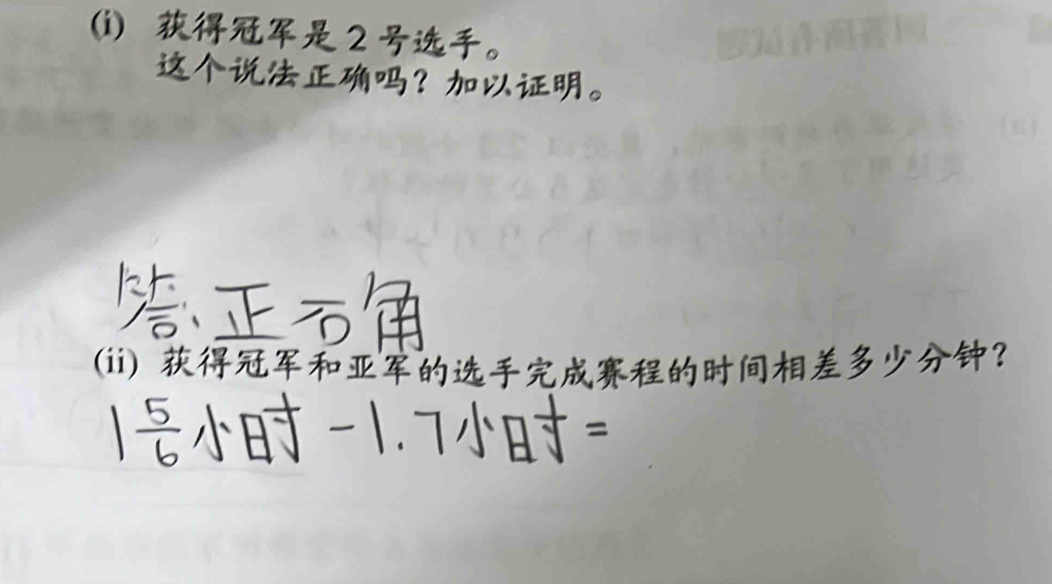 (i) 获得冠军是2号选手。
这个说法正确吗?加以证明。
答:正石角
(ii) 获得冠军和亚军的选手完成赛程的时间相差多少分钟?
1 5/6 小时 - 1.7小时 =